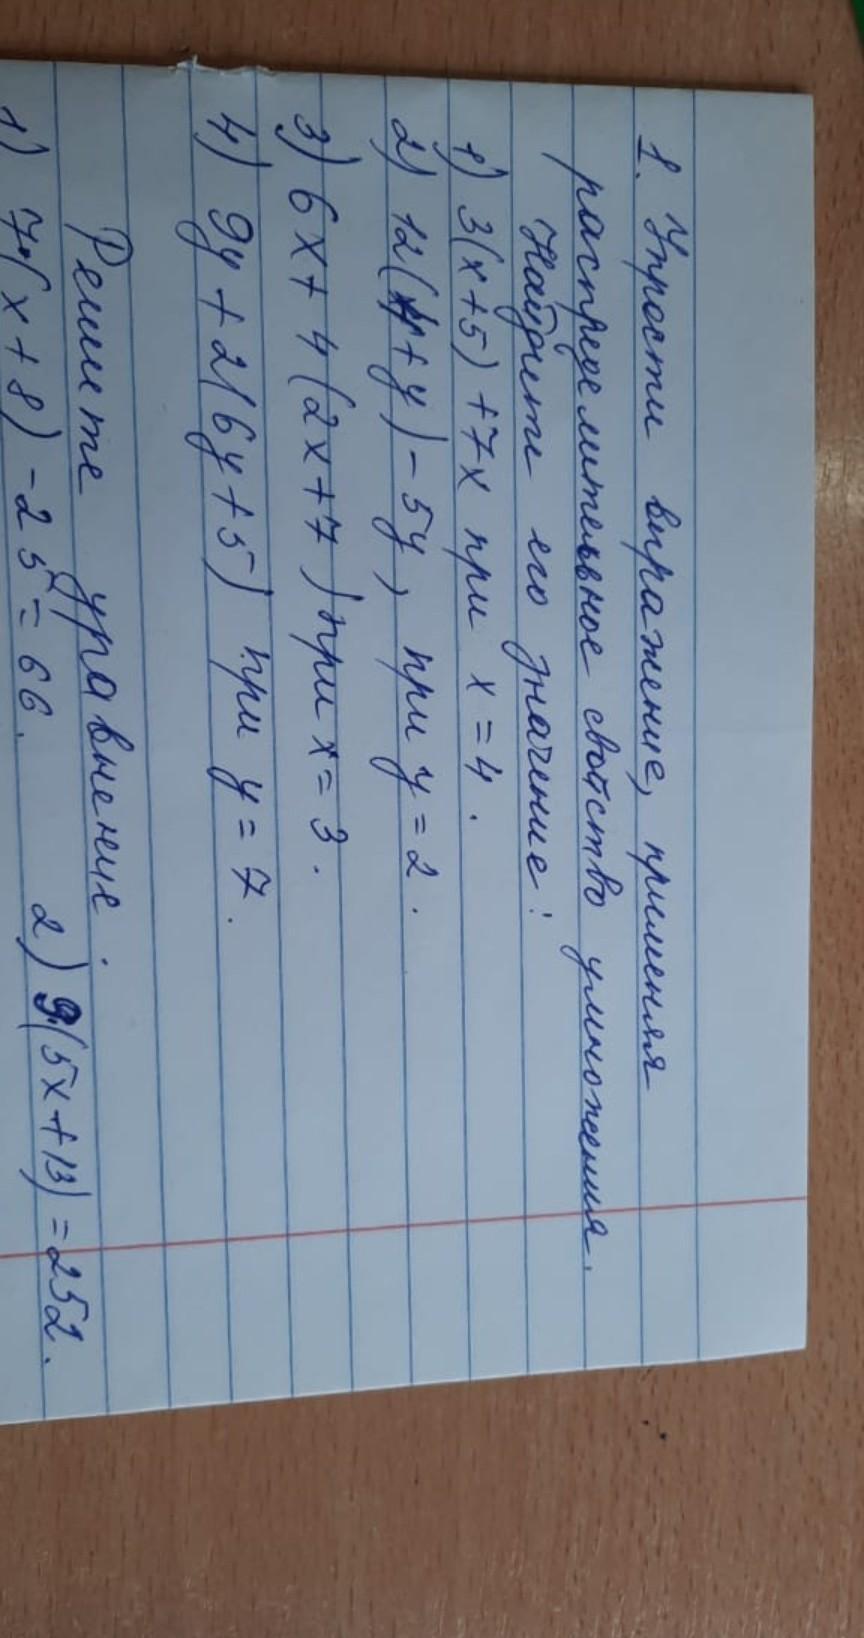 1. Упрости выражение, применяя
распределительное свойство умножения.
Найдите его значение:
1) 3(x+5)+7x при x=4.
2) 12( +y)-5y, при y=2.
3) 6x+4(2x+7) при x=3.
4) 9y+2(6y+5) при y=7.
Решите уравнение.
1) 7·(x+8)-25=66. 2) 9·(5x+13)=252.